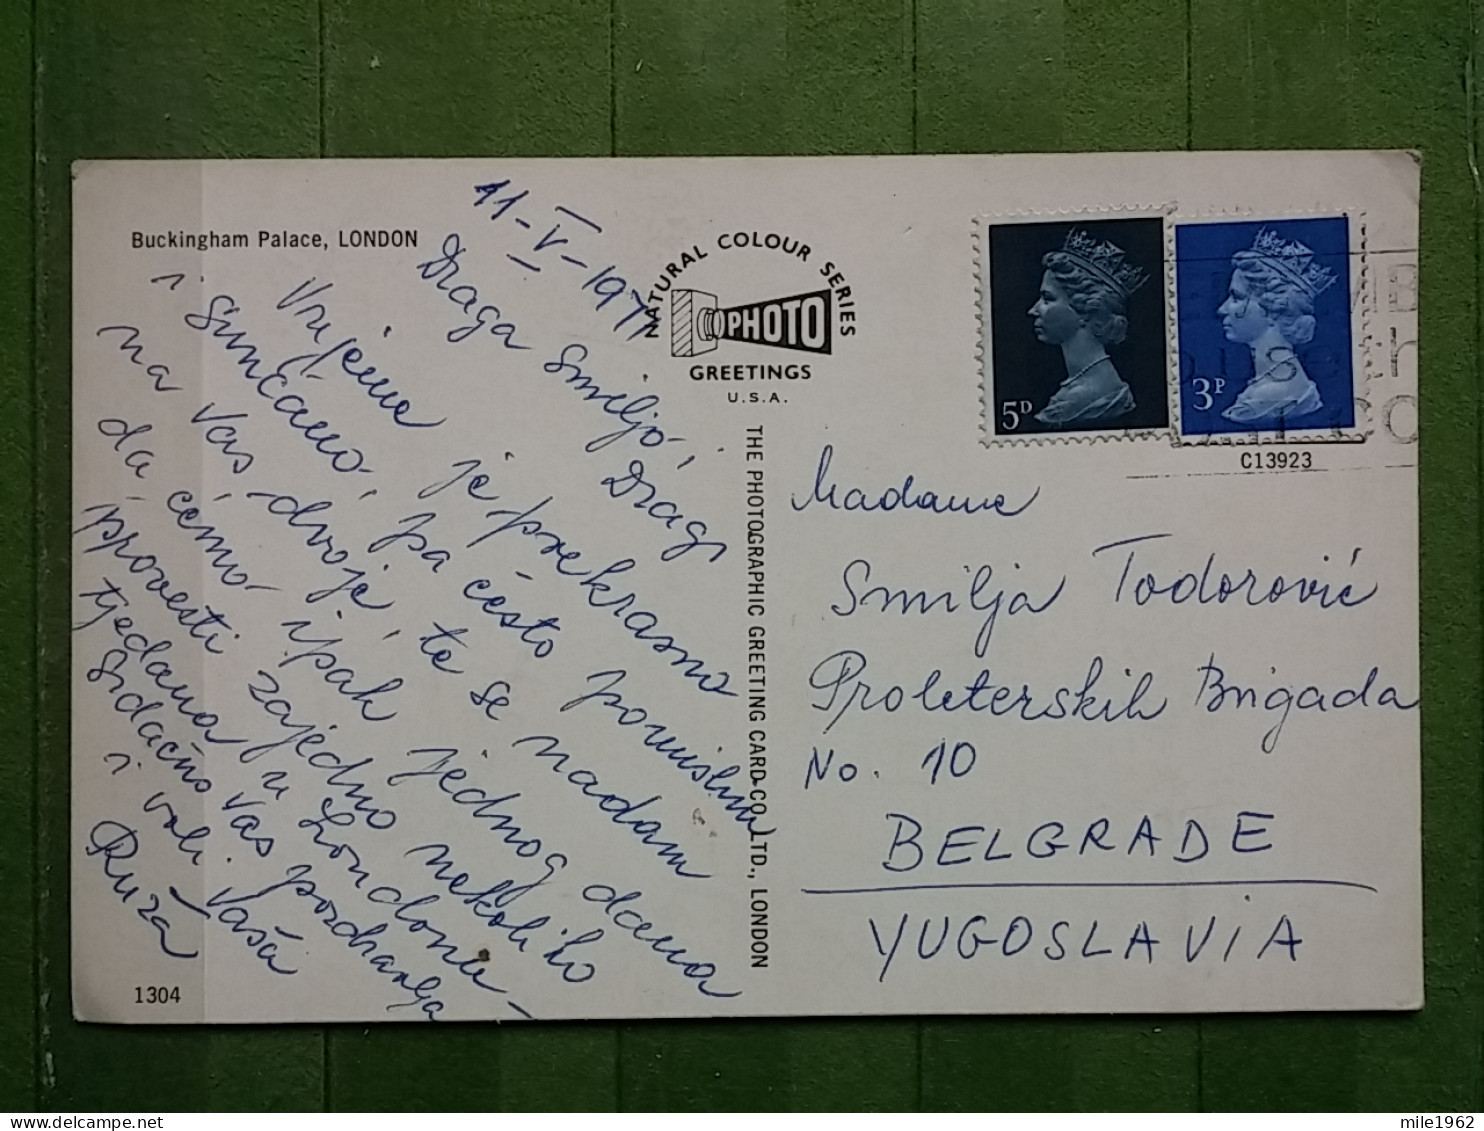 Buckingham Palace, LONDON
11-V-1971
Draga Smiljo, Dragi
Vrijeme je prekrasno
i sunčano, pa često pomislim
na vas dvoje, te se nadam
da ćemo ipak jednog dana
provesti zajedno nekoliko
tjedana u Londonu-
Srdačno vas pozdravlja
i voli vaša
Ruža
1304
NATURAL COLOUR SERIES
PHOTO
GREETINGS
U.S.A.
THE PHOTOGRAPHIC GREETING CARD CO. LTD., LONDON
5D
3P
C13923
Madame
Smilja Todorović
Proleterskih Brigada
No. 10
BELGRADE
YUGOSLAVIA
mile1962